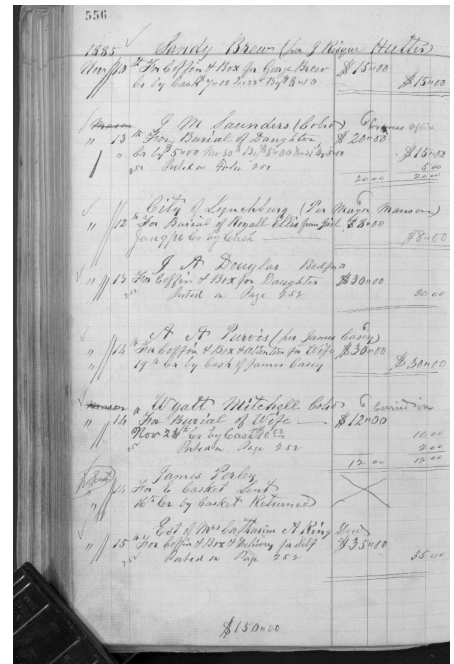 556
1885 Sandy Brew (per J Risque Hutter)
Nov 10 th For Coffin & Box for George Brew $15.00
Cr by Cash $15.00
J M Saunders (Cold)
" 13 th For Burial of Daughter $20.00
Cr by 5.00 Nov 30th $15.00
Posted on Folio 251 5.00
20 00 20 00
City of Lynchburg (Per Mayor Manson)
" 12 th For Burial of Royall Ellis from Jail $8.00
Jany /86 Cr by Cash $8.00
J A Douglas Bedford
" 13 For Coffin & Box for Daughter $30.00
Posted on Page 252 30 00
A A Purvis (per James Casey)
" 14 th For Coffin & Box & attention for Wife $30.00
19th Cr by Cash of James Casey $30.00
Wyatt Mitchell Cold
" 14 th For Burial of Wife $12.00
Nov 28th Cr by Cash 10 00 10 00
Posted on Page 252 2 00
12 00 12 00
James
" 14 For Casket Sent
16th Cr by Casket Returned
Est of Mrs Catharine A King Decd
" 15 th For Coffin & Box & Delivery for Self $35.00
252 Posted on Page 252 35 00
$150.00